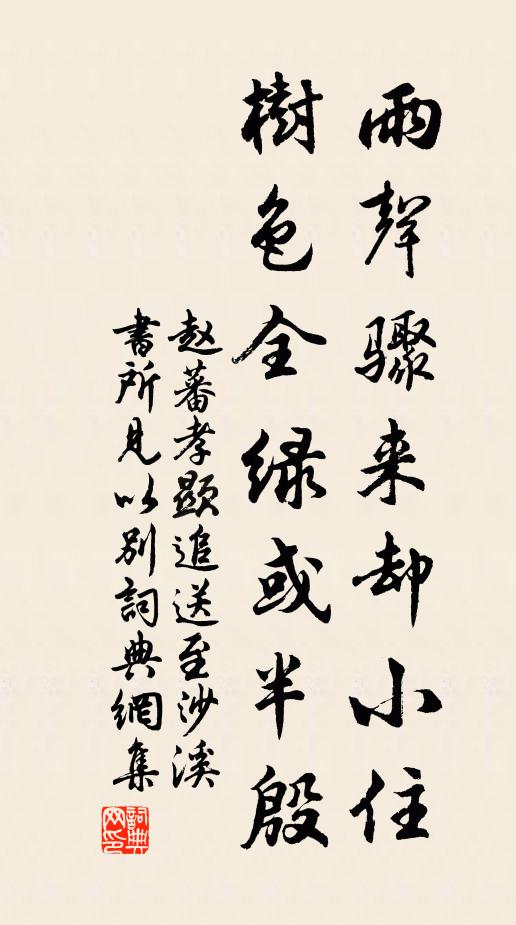 雨聲驟来却小住
樹色全绿或半殷
赵蕃孝顯追送至沙溪
書所見以别詞典網集
詞典